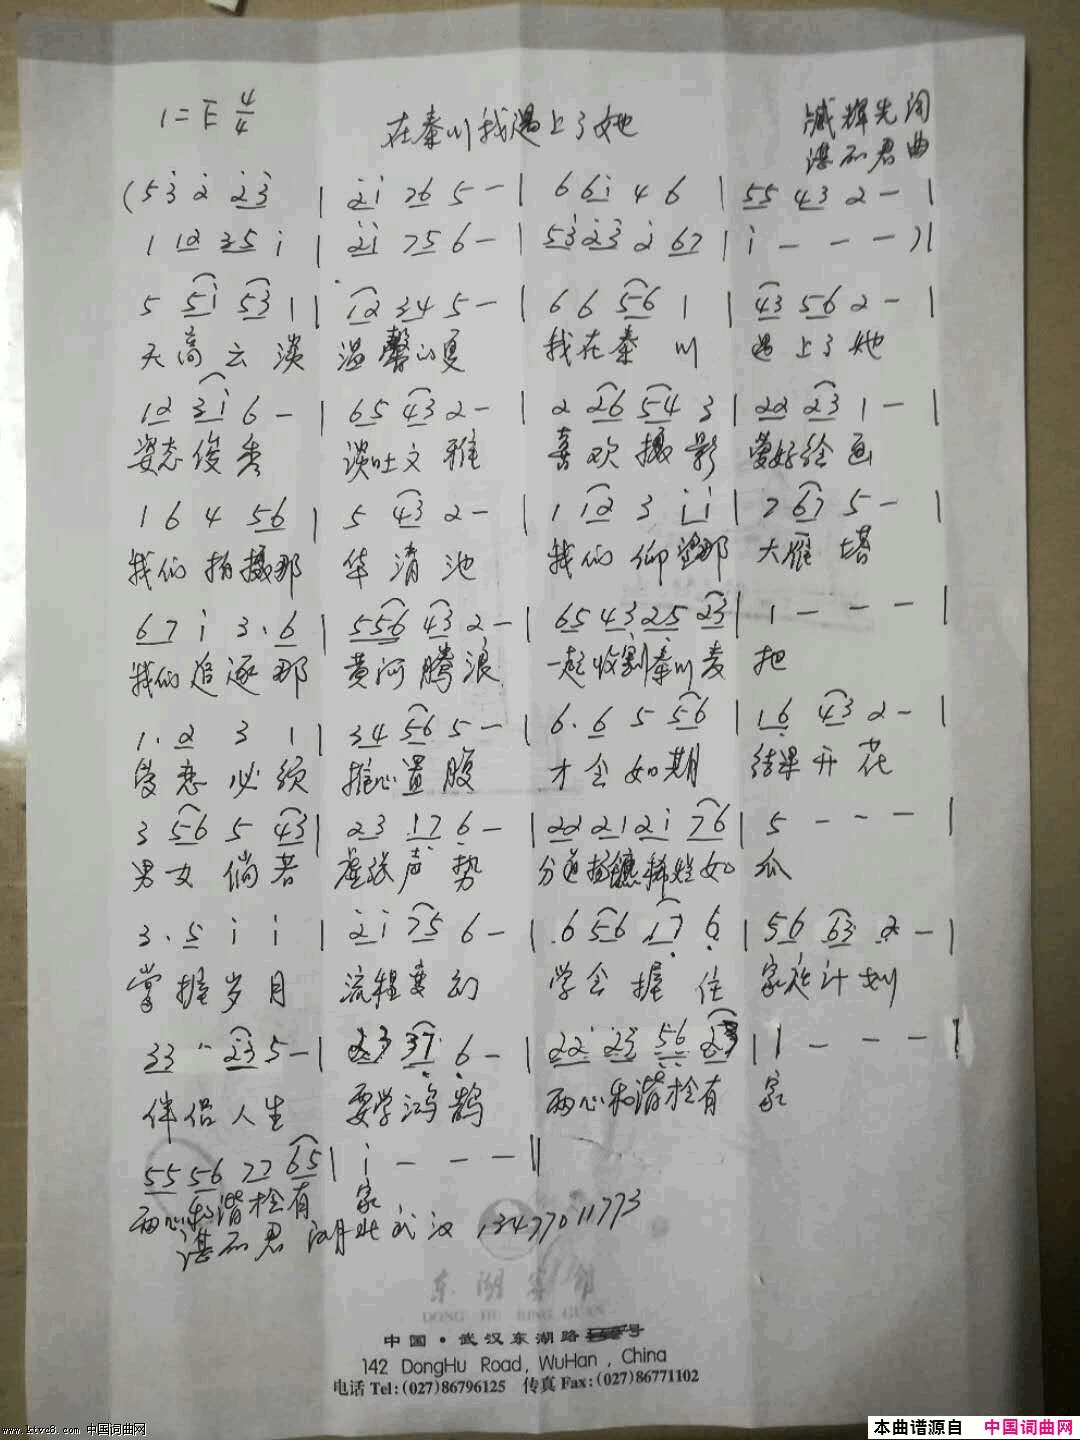 1=E 4/4
在秦川我遇上了她
臧辉先词
谌石君曲
(5 3 2 2 3 | 2 1 7 6 5 - | 6 6 1 4 6 | 5 5 4 3 2 - |
1 1 2 3 5 1 | 2 1 7 5 6 - | 5 3 2 3 2 6 7 | 1 - - - )|
5 5 1 5 3 1 | 1 2 3 4 5 - | 6 6 5 6 1 | 4 3 5 6 2 - |
天高云淡 温馨的夏 我在秦川 遇上了她
1 2 3 1 6 - | 6 5 4 3 2 - | 2 2 6 5 4 3 | 2 2 2 3 1 - |
姿态俊秀 谈吐文雅 喜欢摄影 爱好绘画
1 6 4 5 6 | 5 4 3 2 - | 1 1 2 3 1 1 | 7 6 7 5 - |
我们拍摄那 华清池 我们仰望那 大雁塔
6 7 1 3 . 6 | 5 5 6 4 3 2 - | 6 5 4 3 2 5 2 3 | 1 - - - |
我们追逐那 黄河腾浪 一起收割秦川麦 把
1 . 2 3 1 | 3 4 5 6 5 - | 6 . 6 5 5 6 | 1 6 4 3 2 - |
爱恋必须 推心置腹 才会如期 结果开花
3 5 6 5 4 3 | 2 3 1 7 6 - | 2 2 2 1 2 1 7 6 | 5 - - - |
男女倘若 虚张声势 分道扬镳稀烂如 瓜
3 . 5 1 1 | 2 1 7 5 6 - | 6 5 6 1 7 6 | 5 6 6 3 2 - |
掌握岁月 流程变幻 学会握住 家庭计划
3 3 2 3 5 - | 2 3 3 7 6 - | 2 2 2 3 5 6 2 3 | 1 - - - |
伴侣人生 要学鸿鹄 两心和谐才会有 家
5 5 5 6 7 7 6 5 | 1 - - - ‖
两心和谐才会有 家
谌石君 湖北武汉 13477011773
东湖宾馆
DONG HU BING GUAN
中国·武汉东湖路 号
142 DongHu Road, WuHan , China
电话 Tel:(027)86796125 传真 Fax:(027)86771102
www.ktvc8.com 中国词曲网
本曲谱源自 中国词曲网